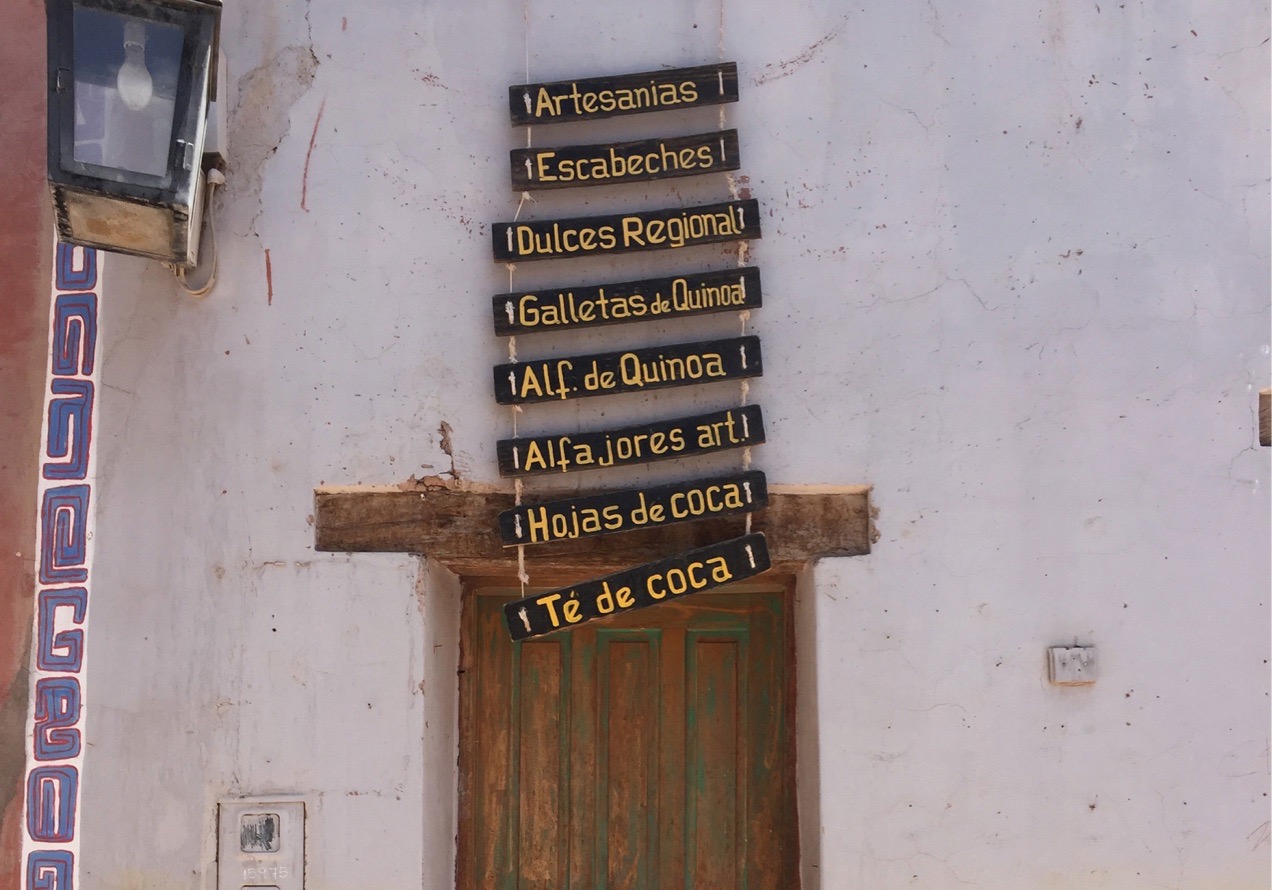 Artesanias
Escabeches
Dulces Regional
Galletas de Quinoa
Alf. de Quinoa
Alfajores art.
Hojas de coca
Té de coca
15975